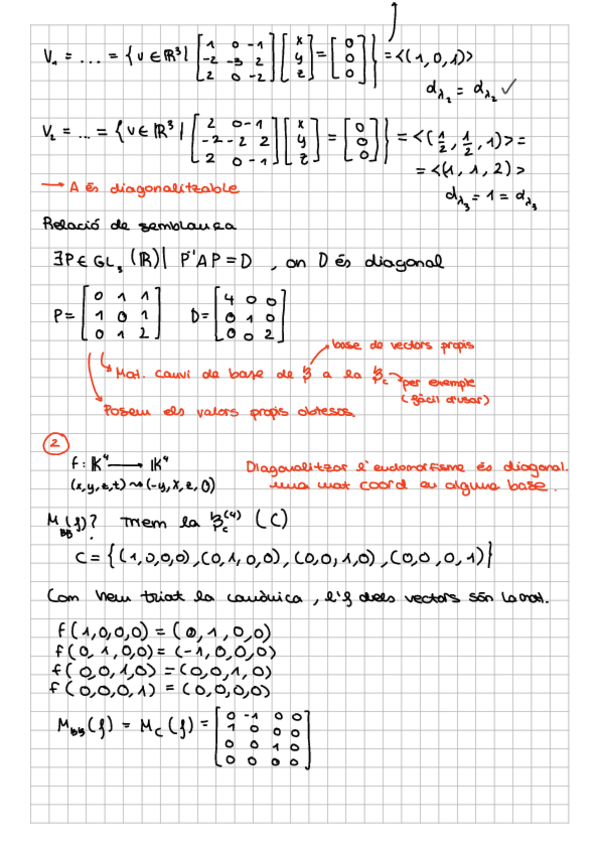 V₁ = ... = {v∈ℝ³ | [1 0 -1; -2 -3 2; 2 0 -2] [x; y; z] = [0; 0; 0]} = <(1,0,1)>
d_λ₂ = d_λ₂ ✓
V₂ = ... = {v∈ℝ³ | [2 0 -1; -2 -2 2; 2 0 -1] [x; y; z] = [0; 0; 0]} = <(1/2, 1/2, 1)> =
= <(1, 1, 2)>
d_λ₃ = 1 = d_λ₃
→ A és diagonalitzable
Relació de semblança
∃P∈GL₃(ℝ) | P⁻¹AP = D , on D és diagonal
P = [0 1 1; 1 0 1; 0 1 2] D = [4 0 0; 0 1 0; 0 0 2]
base de vectors propis
Mat. canvi de base de B a la B_c → per exemple
(fàcil d'usar)
Posem els valors propis obtesos
2
f: 𝕂⁴ → 𝕂⁴
Diagonalitzar l'endomorfisme és diagonal.
(x,y,z,t) ⇝ (-y,x,z,0)
una mat coord en alguna base.
M_BB(f)? Triem la B_c⁽⁴⁾ (C)
C = {(1,0,0,0), (0,1,0,0), (0,0,1,0), (0,0,0,1)}
Com hem triat la canònica, l'f dels vectors són la mat.
f(1,0,0,0) = (0,1,0,0)
f(0,1,0,0) = (-1,0,0,0)
f(0,0,1,0) = (0,0,1,0)
f(0,0,0,1) = (0,0,0,0)
M_BB(f) = M_C(f) = [0 -1 0 0; 1 0 0 0; 0 0 1 0; 0 0 0 0]